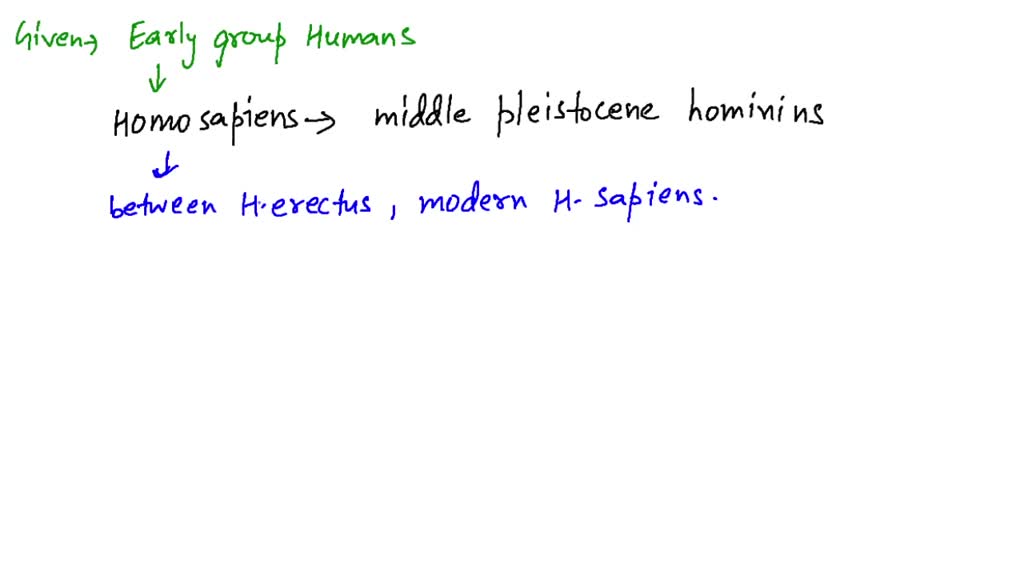 Given→ Early group Humans
↓
Homosapiens→ middle pleistocene hominins
↓
between H.erectus, modern H- sapiens.